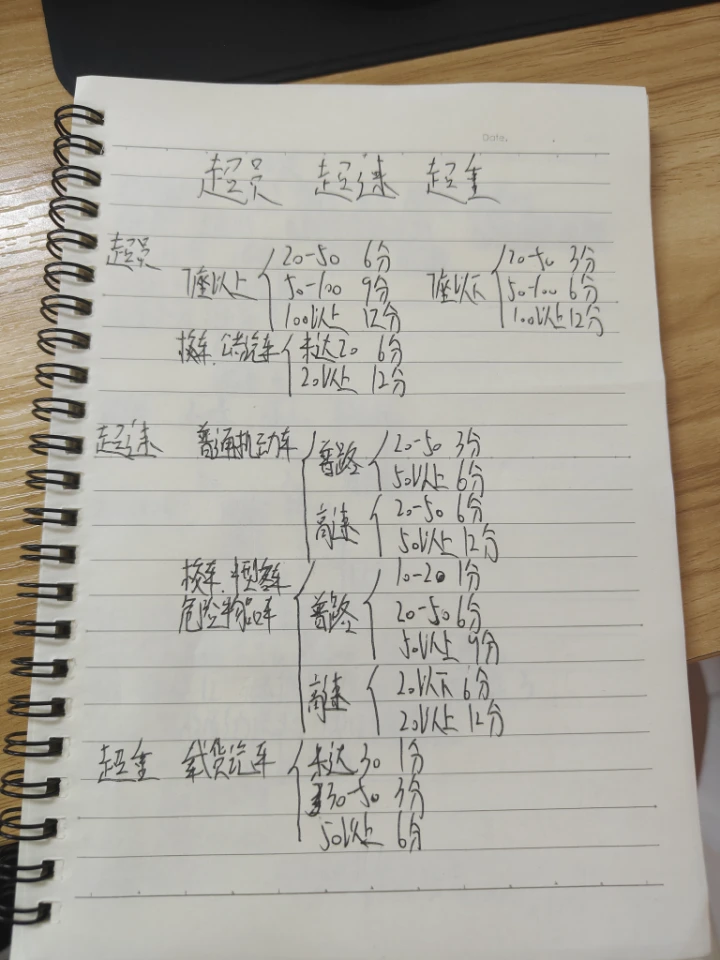 Date.
超员 超速 超重
超员
7座以上 20-50 6分 7座以下 20-50 3分
50-100 9分 50-100 6分
100以上 12分 100以上 12分
校车、公路汽车 未达20 6分
20以上 12分
超速 普通机动车 普路 20-50 3分
50以上 6分
高速 20-50 6分
50以上 12分
校车、中型客车 普路 10-20 1分
危险物品车 20-50 6分
50以上 9分
高速 20以下 6分
20以上 12分
超重 载货汽车 未达30 1分
30-50 3分
50以上 6分